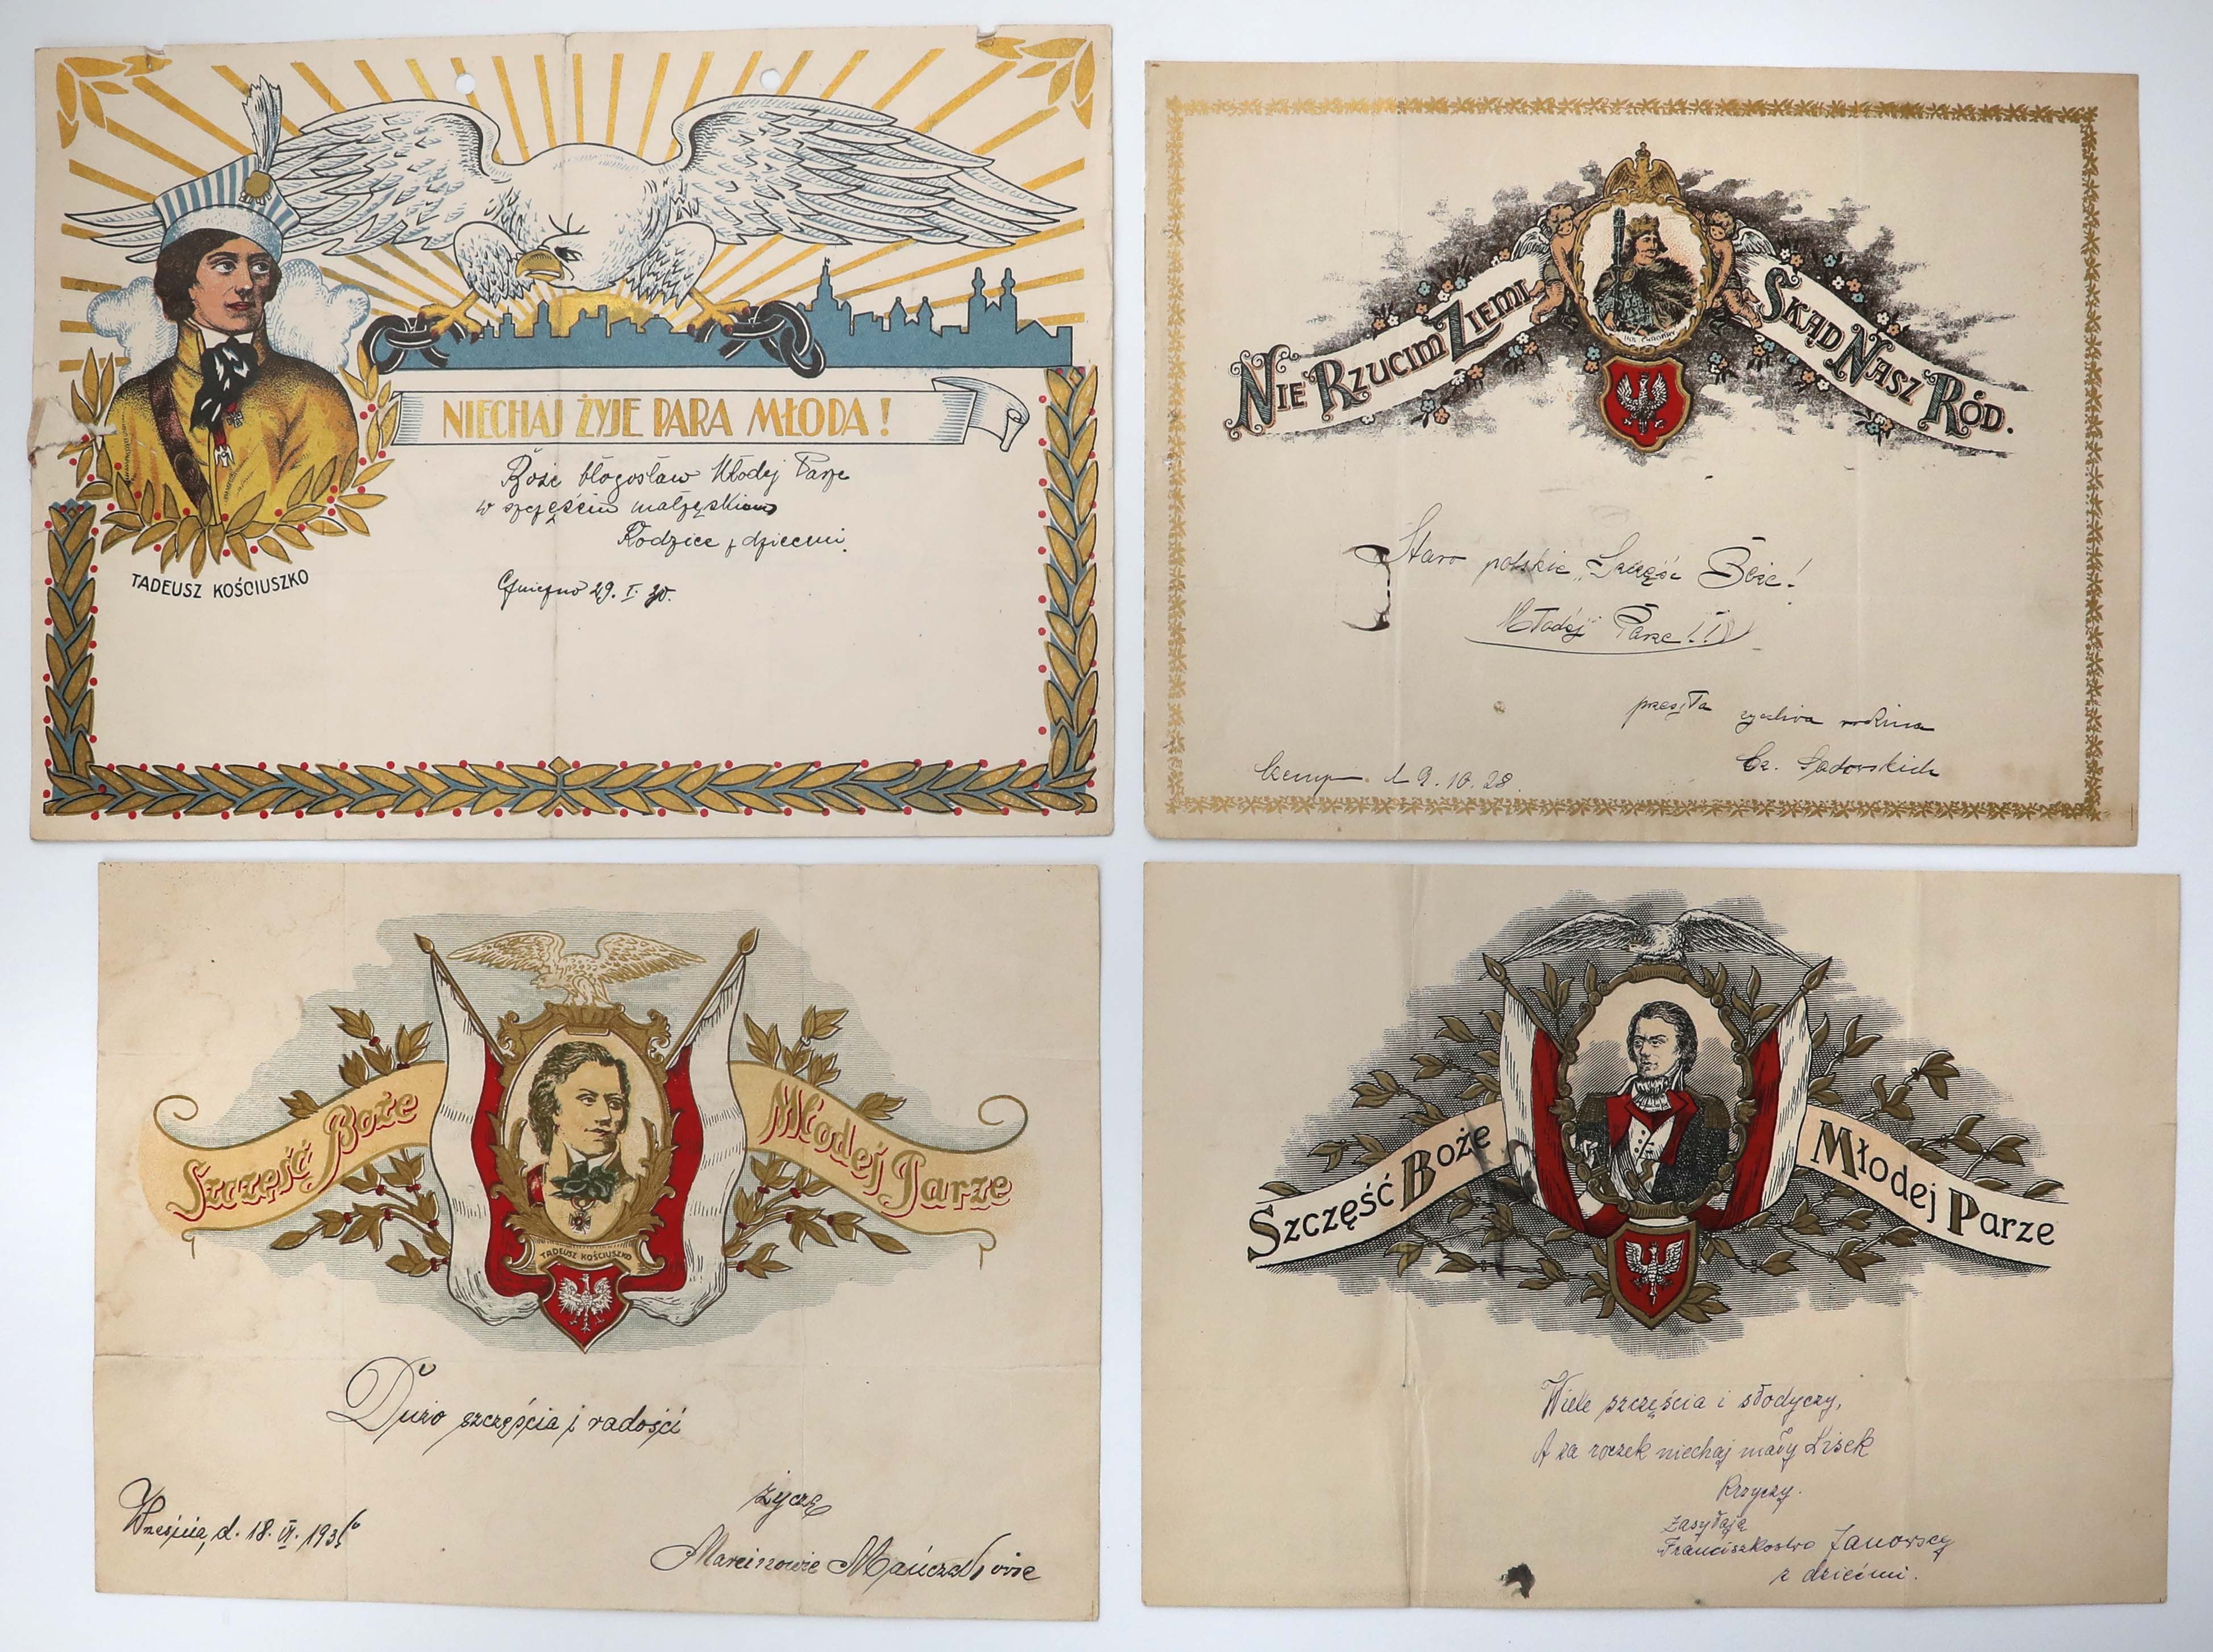 NIECHAJ ŻYJE PARA MŁODA!
Boże błogosław Młodej Parze
w szczęściu małżęskiem
Rodzice z dziećmi.
Gniezno 29. I. 30.
TADEUSZ KOŚCIUSZKO
NIE RZUCIM ZIEMI
SKĄD NASZ RÓD.
BOL. CHROBRY
Staro polskie „Szczęść Boże!
Młodej Parze!!!
przesyła życzliwa rodzina
Cz. Sadowskich
d 9. 10. 28.
Szczęść Boże
Młodej Parze
TADEUSZ KOŚCIUSZKO
Dużo szczęścia i radości
życzą
Września, d. 18. VI. 1936
Marcinowie
Szczęść Boże
Młodej Parze
Wiele szczęścia i słodyczy,
A za roczek niechaj mały Lisek
Krzyczy.
Zasyłają
Franciszkostwo Janowscy
z dziećmi.